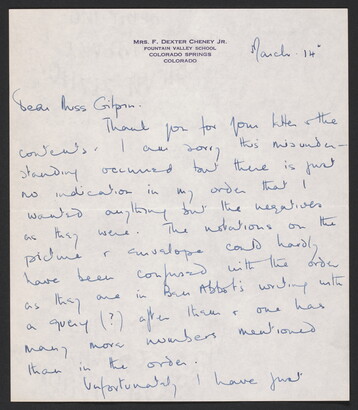 MRS. F. DEXTER CHENEY JR.
FOUNTAIN VALLEY SCHOOL
COLORADO SPRINGS
COLORADO
March 14
Dear Miss Gilpin.
Thank you for your letter & the
contents. I am sorry this misunder-
standing occurred but there is just
no indication in my order that I
wanted anything but the negatives
as they were. The notations on the
picture & envelope could hardly
have been confused with the order
as they are in Ben Abbot's writing with
a query (?) after them & one has
many more numbers mentioned
than in the order.
Unfortunately I have just